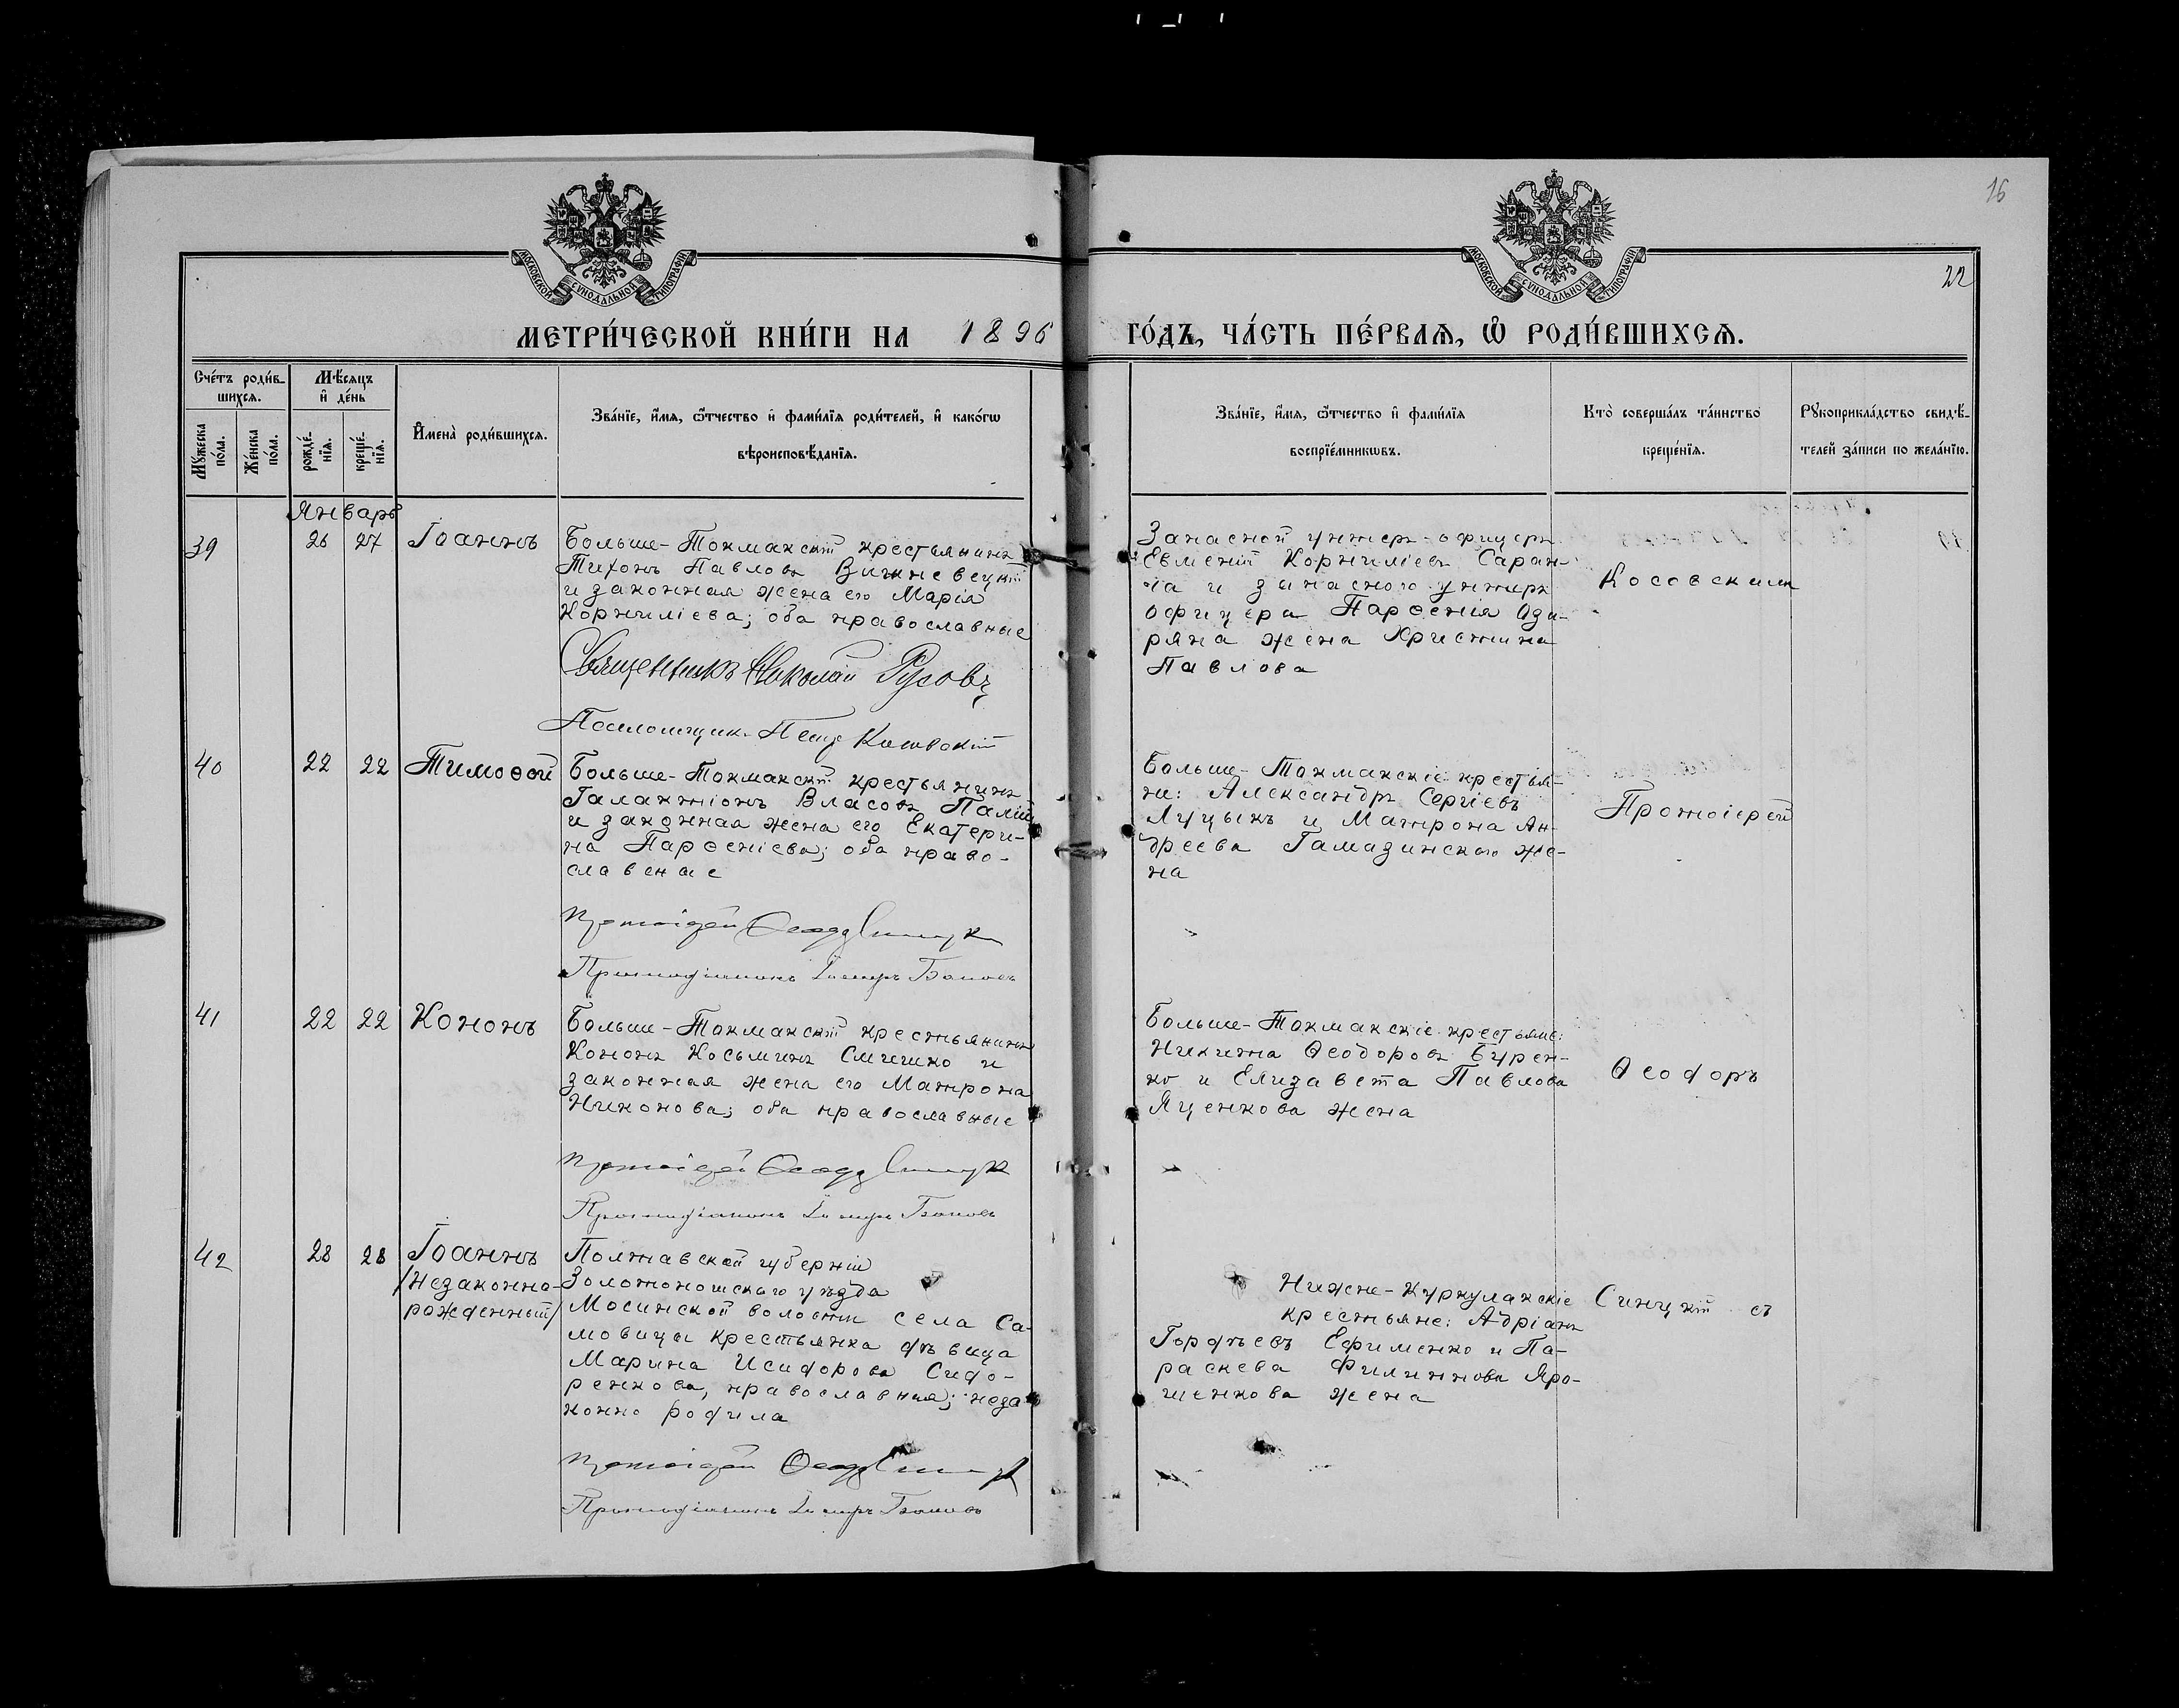 16
22
МОСКОВСКОЙ СУНОДАЛЬНОЙ ТИПОГРАФІИ
МОСКОВСКОЙ СУНОДАЛЬНОЙ ТИПОГРАФІИ
МЕТРИ́ЧЕСКОЙ КНИ́ГИ НА 1896 ГО́ДЪ, ЧА́СТЬ ПЕ́РВАѦ, Ѡ҆ РОДИ́ВШИХСѦ.
Сче́тъ роди́в-
шихсѧ.
Мꙋ́жеска по́ла.
Же́нска по́ла.
Мѣ́сѧцъ
и҆ де́нь
рожде́-
нїѧ.
креще́-
нїѧ.
И҆мена̀ роди́вшихсѧ.
Зва́нїе, и҆́мѧ, ѻ҆́тчество и҆ фами́лїѧ роди́телей, и҆ како́гѡ
вѣроисповѣ́данїѧ.
Зва́нїе, и҆́мѧ, ѻ҆́тчество и҆ фами́лїѧ
воспрїе́мникѡвъ.
Кто̀ соверша́лъ та́инство
креще́нїѧ.
Рꙋкоприкла́дство свидѣ́-
телей за́писи по жела́нїю.
Январь
39 26 27 Іоаннъ
Больше-Токмакскій крестьянинъ
Тихонъ Павловъ Вишневецкій
и законная жена его Марія
Корниліева; оба православные
Священникъ Николай Русовъ
Псаломщикъ Петръ
Запасной унтеръ-офицеръ
Евменій Корниліевъ Саран-
ча и запасного унтеръ
офицера Парѳенія Ози-
ряна жена Христина
Павлова
Косовскимъ
40 22 22 Тимоѳей
Больше-Токмакскій крестьянинъ
Галактіонъ Власовъ Палій
и законная жена его Екатери-
на Парѳеніева; оба право-
славные
Протоіерей Ѳеодоръ Синицкій
Протодіаконъ
Больше-Токмакскіе крестья-
не: Александръ Сергіевъ
Луцыкъ и Матрона Ан-
дреева Гамазинскаго же-
на
Протоіерей
41 22 22 Кононъ
Больше-Токмакскій крестьянинъ
Кононъ Косьминъ Смишко и
законная жена его Матрона
Никонова; оба православные
Протоіерей Ѳеодоръ Синицкій
Протодіаконъ
Больше-Токмакскіе крестьяне:
Никита Ѳеодоровъ Бурен-
ко и Елизавета Павлова
Яценкова жена
Ѳеодоръ
42 28 28 Іоаннъ
/Незаконно-
рожденный/
Полтавской губерніи
Золотоношскаго уѣзда
Мосинской волости села Са-
мовицы крестьянка дѣвица
Марина Исидорова Сидо-
ренкова, православная; неза-
конно родила
Протоіерей Ѳеодоръ Синицкій
Протодіаконъ
Нижне-Куркулакскіе
крестьяне: Адріанъ
Гордѣевъ Ефименко и Па-
раскева Филиппова Яро-
шенкова жена
Синицкій съ